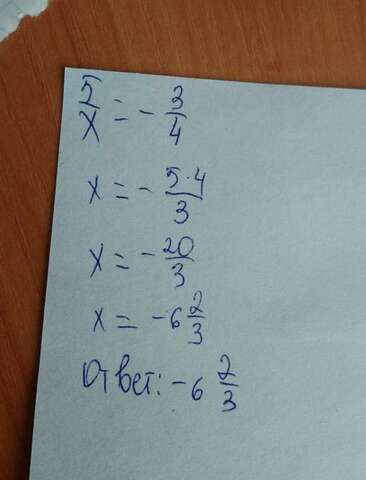 5/x = - 3/4
x = - 5·4/3
x = - 20/3
x = - 6 2/3
Ответ: - 6 2/3